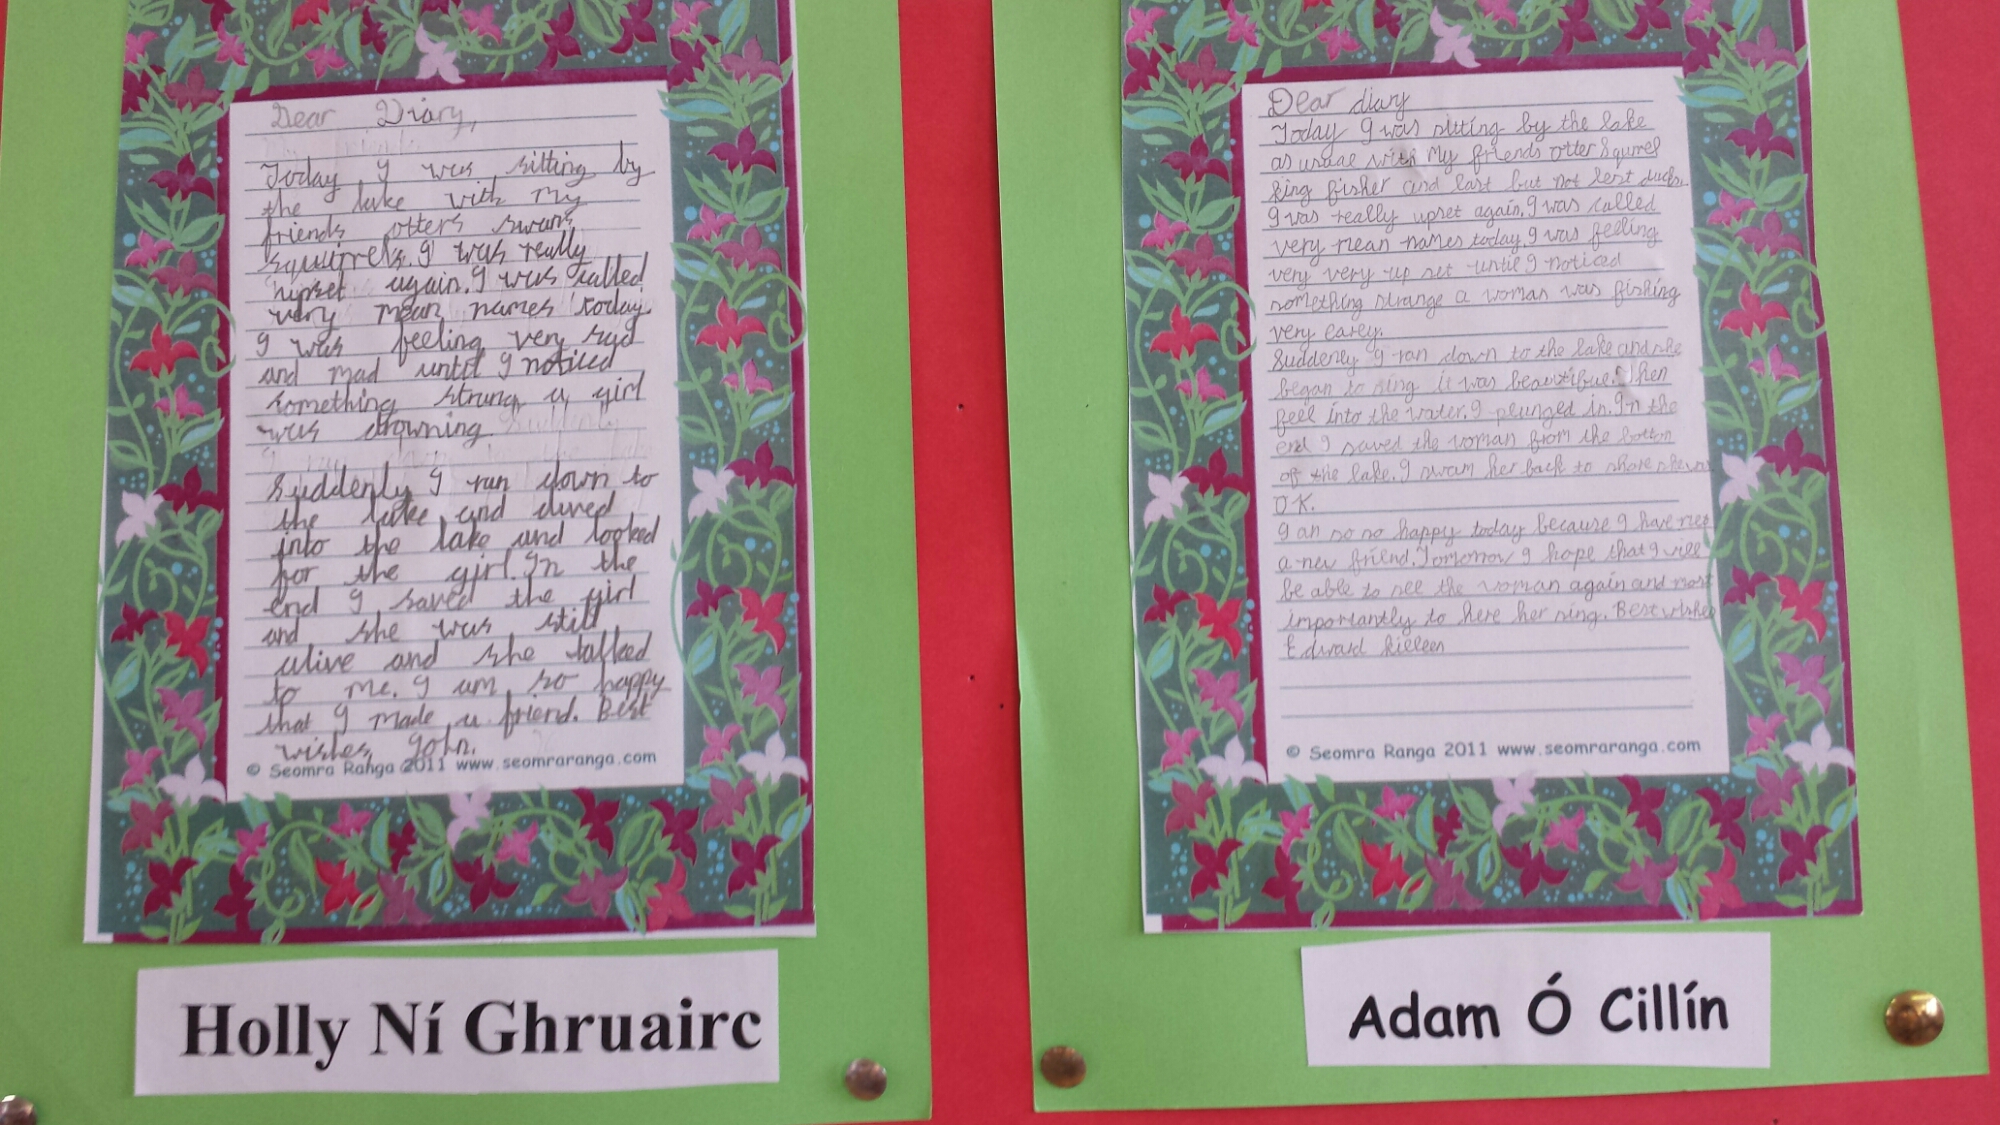 Dear Diary,
Today I was sitting by
the lake with my
friends otters swans
squirrels. I was really
hupset again. I was called
very mean names today.
I was feeling very sad
and mad until I noticed
something strang a girl
was drowning.
Suddenly I ran down to
the lake and dived
into the lake and looked
for the girl. In the
end I saved the girl
and she was still
alive and she talked
to me. I am so happy
that I made a friend. Best
wishes, John.
© Seomra Ranga 2011 www.seomraranga.com
Holly Ní Ghruairc
Dear diary
Today I was sitting by the lake
as usual with My friends otter Squirrel
king fisher and last but not lest ducks
I was really upset again. I was called
very mean names today. I was feeling
very very up set until I noticed
something strange a woman was fishing
very earey.
Suddenly I ran down to the lake and she
began to sing it was beautiful. Then
feel into the water. I plunged in. In the
end I saved the woman from the bottom
off the lake. I swam her back to shore
O K.
I am so so happy today because I have
a new friend. Tomorrow I hope that I will
be able to see the woman again and most
importantly to here her sing. Best wishes
Edward killeen
© Seomra Ranga 2011 www.seomraranga.com
Adam Ó Cillín